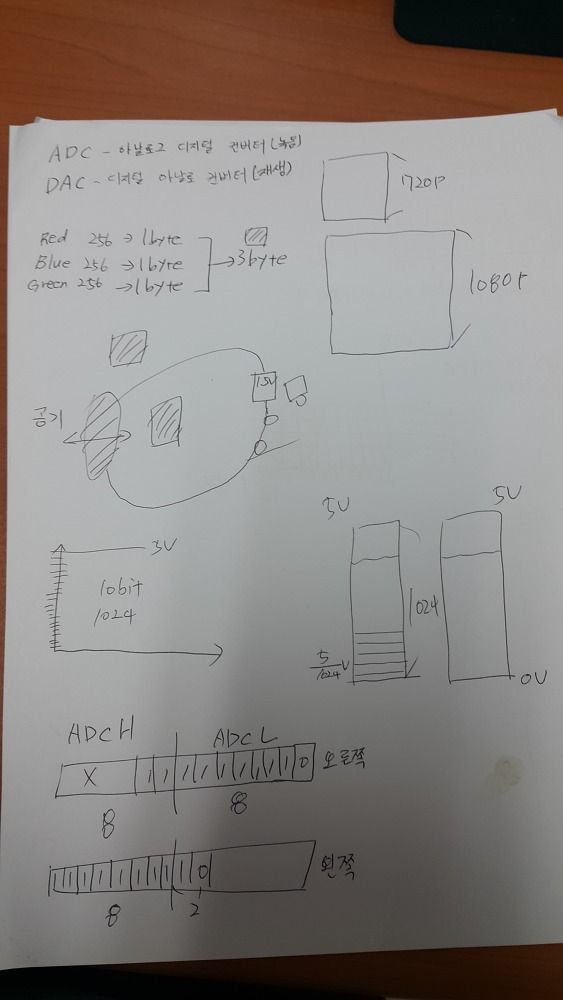 ADC - 아날로그 디지털 컨버터 (녹음)
DAC - 디지털 아날로 컨버터 (재생)
720P
Red 256 → 1byte
Blue 256 → 1byte
Green 256 → 1byte
→ 3byte
1080P
1.5V
공기
3V
10bit
1024
5V
1024
5/1024 V
5V
0V
ADCH ADCL
X 1 1 1 1 1 1 1 1 1 0 오른쪽
8 8
1 1 1 1 1 1 1 1 1 0 왼쪽
8 2